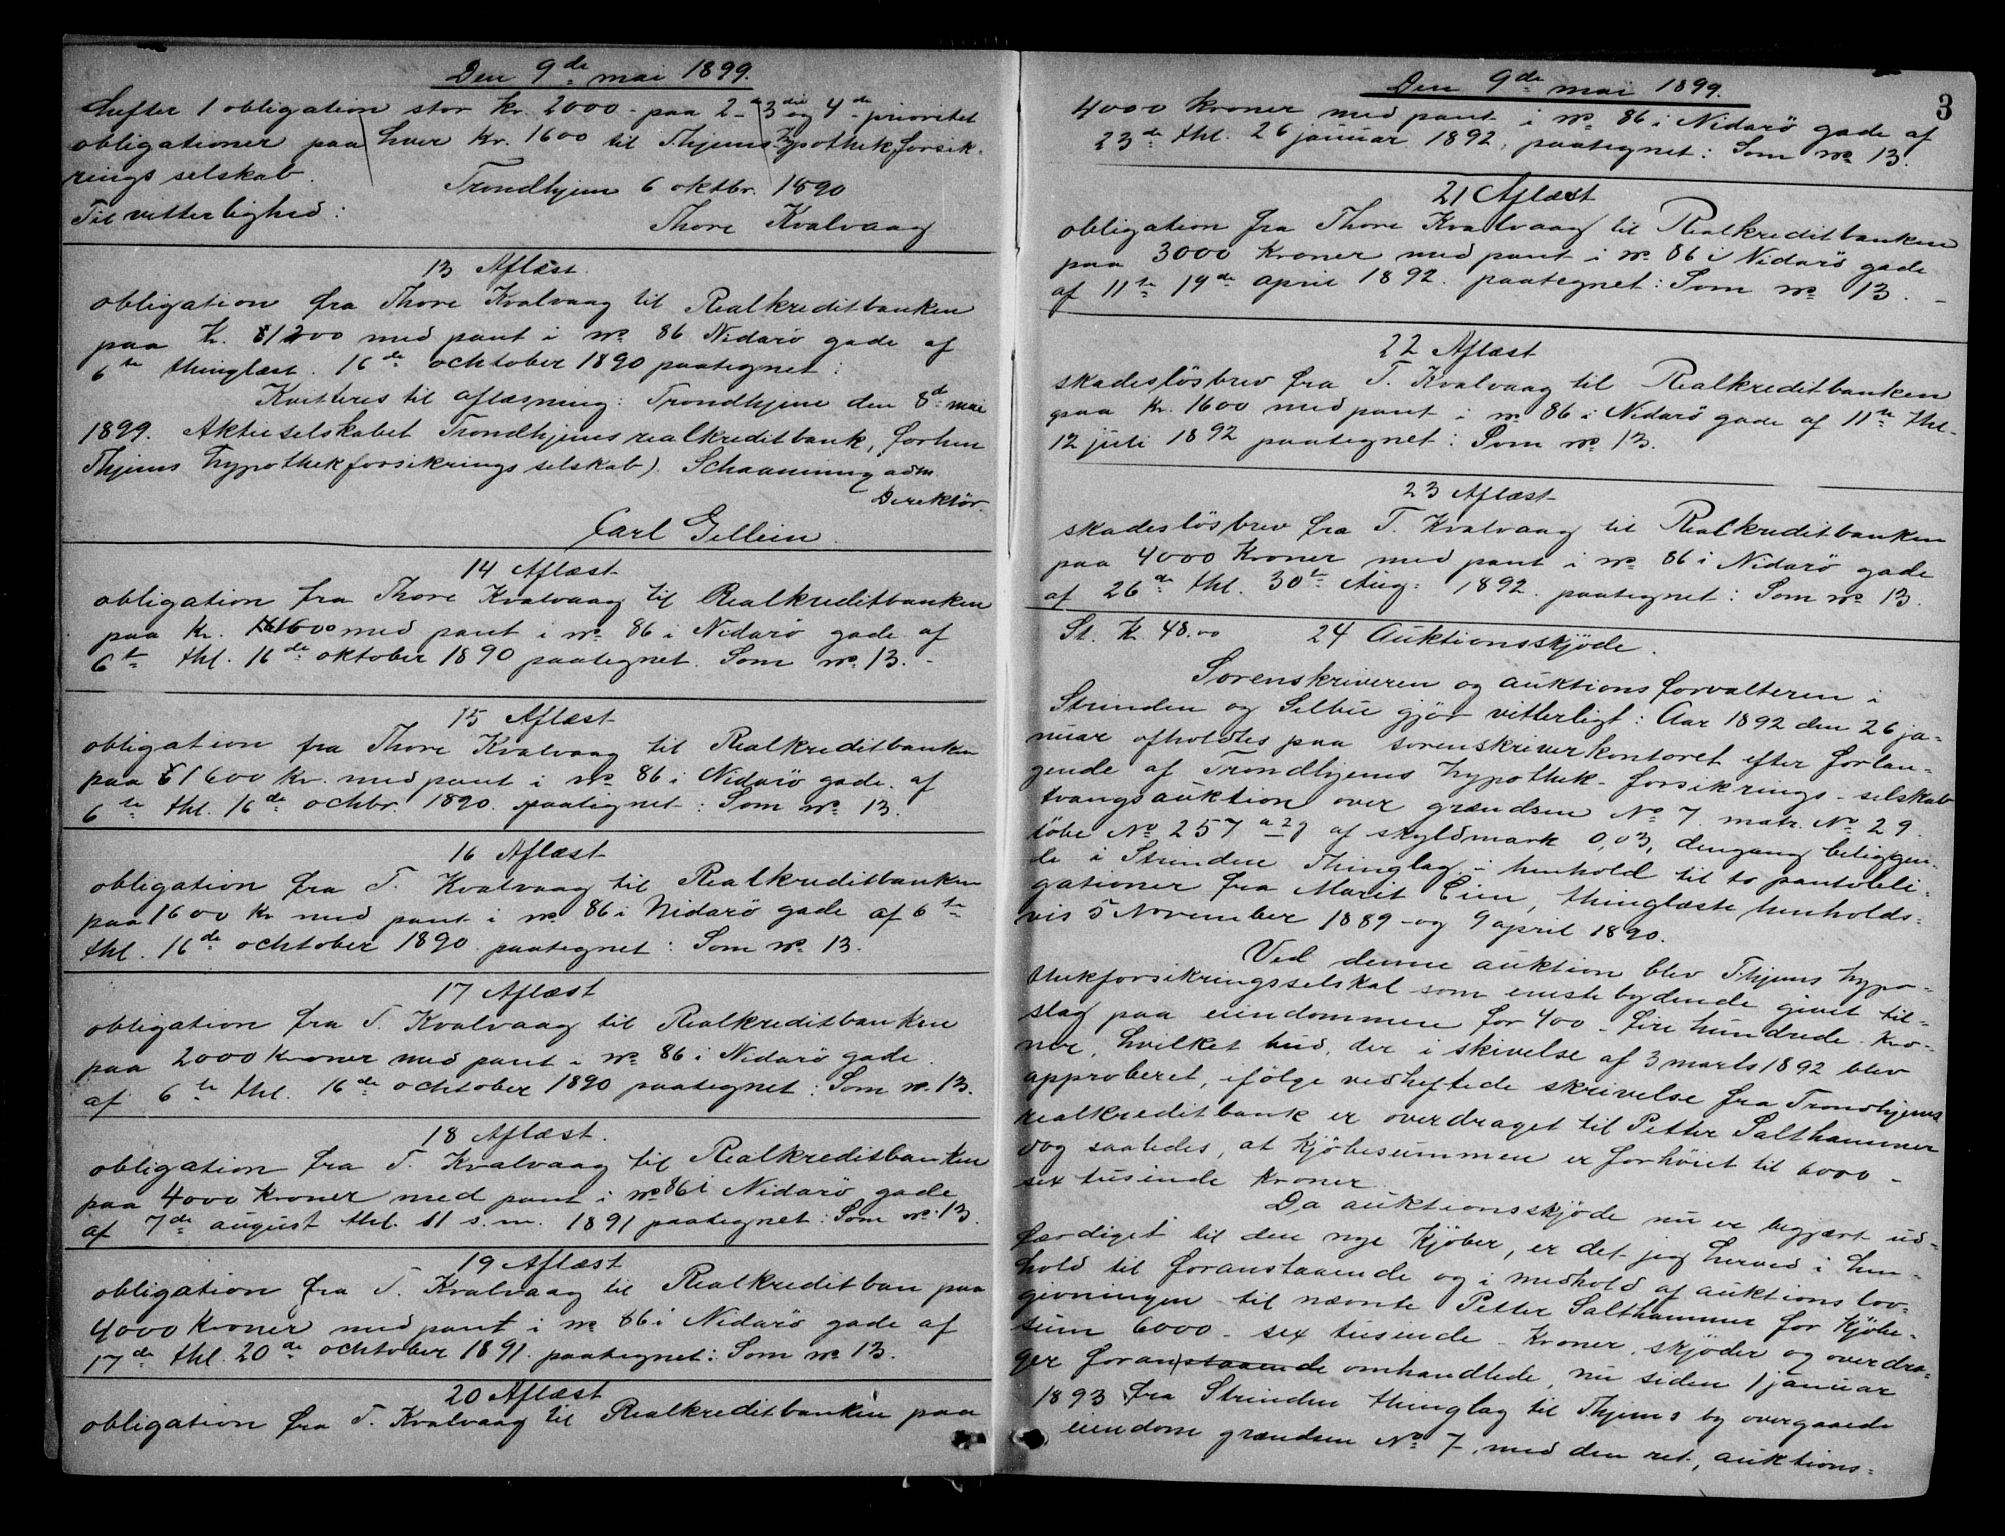 Den 9de mai 1899.
hefter 1 obligation stor kr. 2000 - paa 2de 3die og 4de prioritet
obligationer paa hver Kr. 1600 til Thjems Hypothekforsik-
ringsselskab.
Trondhjem 6 oktbr. 1890
Til vitterlighed:
Thore Kvalvaag
13 Aflæst.
obligation fra Thore Kvalvaag til Realkreditbanken
paa Kr. 1200 med pant i No 86 Nidarø gade af
6te thinglæst. 16de ochtober 1890 paategnet:
Kvitteres til aflæsning: Trondhjem den 8de mai
1899. Aktieselskabet Trondhjems realkreditbank, forhen
Thjems hypothekforsikringsselskab). Schaanning adm.
Direktør.
Carl Gellein.
14 Aflæst
obligation fra Thore Kvalvaag til Realkreditbanken
paa Kr. 1600 med pant i No 86 i Nidarø gade af
6te thl. 16de oktober 1890 paategnet. Som No 13. -
15 Aflæst
obligation fra Thore Kvalvaag til Realkreditbanken
paa 1600 Kr. med pant i No 86 i Nidarø gade. af
6te thl. 16de ochbr. 1890. paategnet: Som No 13.
16 Aflæst
obligation fra T. Kvalvaag til Realkreditbanken
paa 1600 Kr med pant i No 86 i Nidarø gade af 6te
thl. 16de ochtober 1890. paategnet: Som No 13.
17 Aflæst
obligation fra T. Kvalvaag til Realkreditbanken
paa 2000 Kroner med pant i No 86 i Nidarø gade.
af 6te thl. 16de ochtober 1890 paategnet: Som No 13.
18 Aflæst.
obligation fra T. Kvalvaag til Realkreditbanken
paa 4000 Kroner med pant i No 86 i Nidarø gade
af 7de august thl. 11 s.m. 1891 paategnet: Som No 13.
19 Aflæst
obligation fra T. Kvalvaag til Realkreditban paa
4000 Kroner med pant i No 86 i Nidarø gade af
17de thl. 20de ochtober 1891. paategnet: Som No 13.
20 Aflæst
obligation fra T. Kvalvaag til Realkreditbanken paa
Den 9de mai 1899.
3
4000 Kroner med pant i No 86 i Nidarø gade af
23de thl. 26 januar 1892, paategnet: Som No 13.
21 Aflæst
obligation fra Thore Kvalvaag til Realkreditbanken
paa 3000 Kroner med pant i No 86 i Nidarø gade
af 11te 19de april 1892. paategnet: Som No 13. -
22 Aflæst
skadesløsbrev fra T. Kvalvaag til Realkreditbanken
paa Kr. 1600 med pant i No 86 i Nidarø gade af 11te thl.
12 juli 1892 paategnet: Som No 13.
23 Aflæst
skadesløsbrev fra T. Kvalvaag til Realkreditbanken
paa 4000 Kroner med pant i No 86 i Nidarø gade
af 26de thl. 30te Aug. 1892. paategnet: Som No 13.
St. K. 48.00 24 Auktionsskjøde.
Sorenskriveren og auktionsforvalteren i
Strinden og Selbu gjør vitterligt: Aar 1892 den 26 ja-
nuar afholdtes paa sorenskriverkontoret efter forlan-
gende af Trondhjems hypothek-forsikrings-selskab
tvangsauktion over grændsen No 7. matr. No 29.
løbe No 257 a 29 af skyldmark 0,03, dengang beliggen-
de i Strinden Thinglag i henhold til to pantobli-
gationer fra Marit Eim, thinglæste henholds-
vis 5 November 1889 og 9 april 1890.
Ved denne auktion blev Thjems hypo-
thekforsikringsselskab som eneste bydende givet til-
slag paa eiendommen for 400 - fire hundrede Kro-
ner, hvilket bud, der i skivelse af 3 marts 1892 blev
approberet, ifølge vedheftede skrivelse fra Trondhjems
realkreditbank er overdraget til Petter Salthammer
dog saaledes, at kjøbesummen er forhøiet til 6000 -
sex tusinde Kroner.
Da auktionsskjøde nu er begjært ud-
færdiget til den nye Kjøber, er det jeg herved i hen-
hold til foranstaaende og i medhold af auktionslov-
givningen til nævnte Petter Salthammer for Kjøbe-
sum 6000 - sex tusinde - Kroner, skjøder og overdra-
ger foranstaaende omhandlede, nu siden 1 januar
1893 fra Strinden thinglag til Thjems by overgaaede
eiendom grændsen No 7, med den ret, auktions-